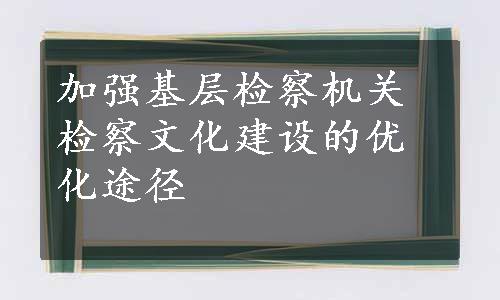 加强基层检察机关
检察文化建设的优
化途径